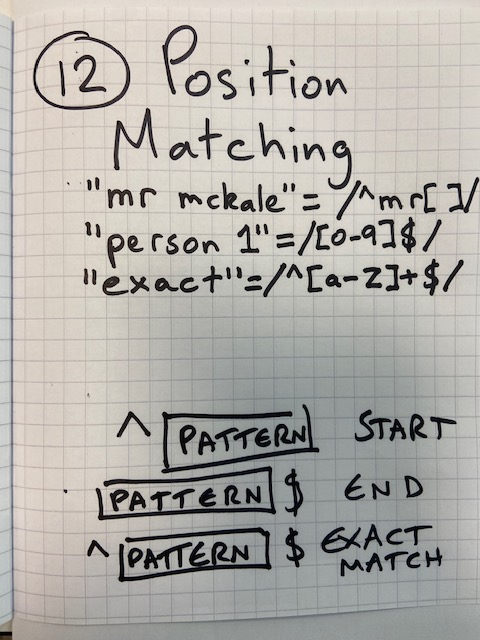 12 Position
Matching
"mr mckale"= /^mr[ ]/
"person 1"=/[0-9]$/
"exact"=/^[a-z]+$/
^ PATTERN START
PATTERN $ END
^ PATTERN $ EXACT
MATCH